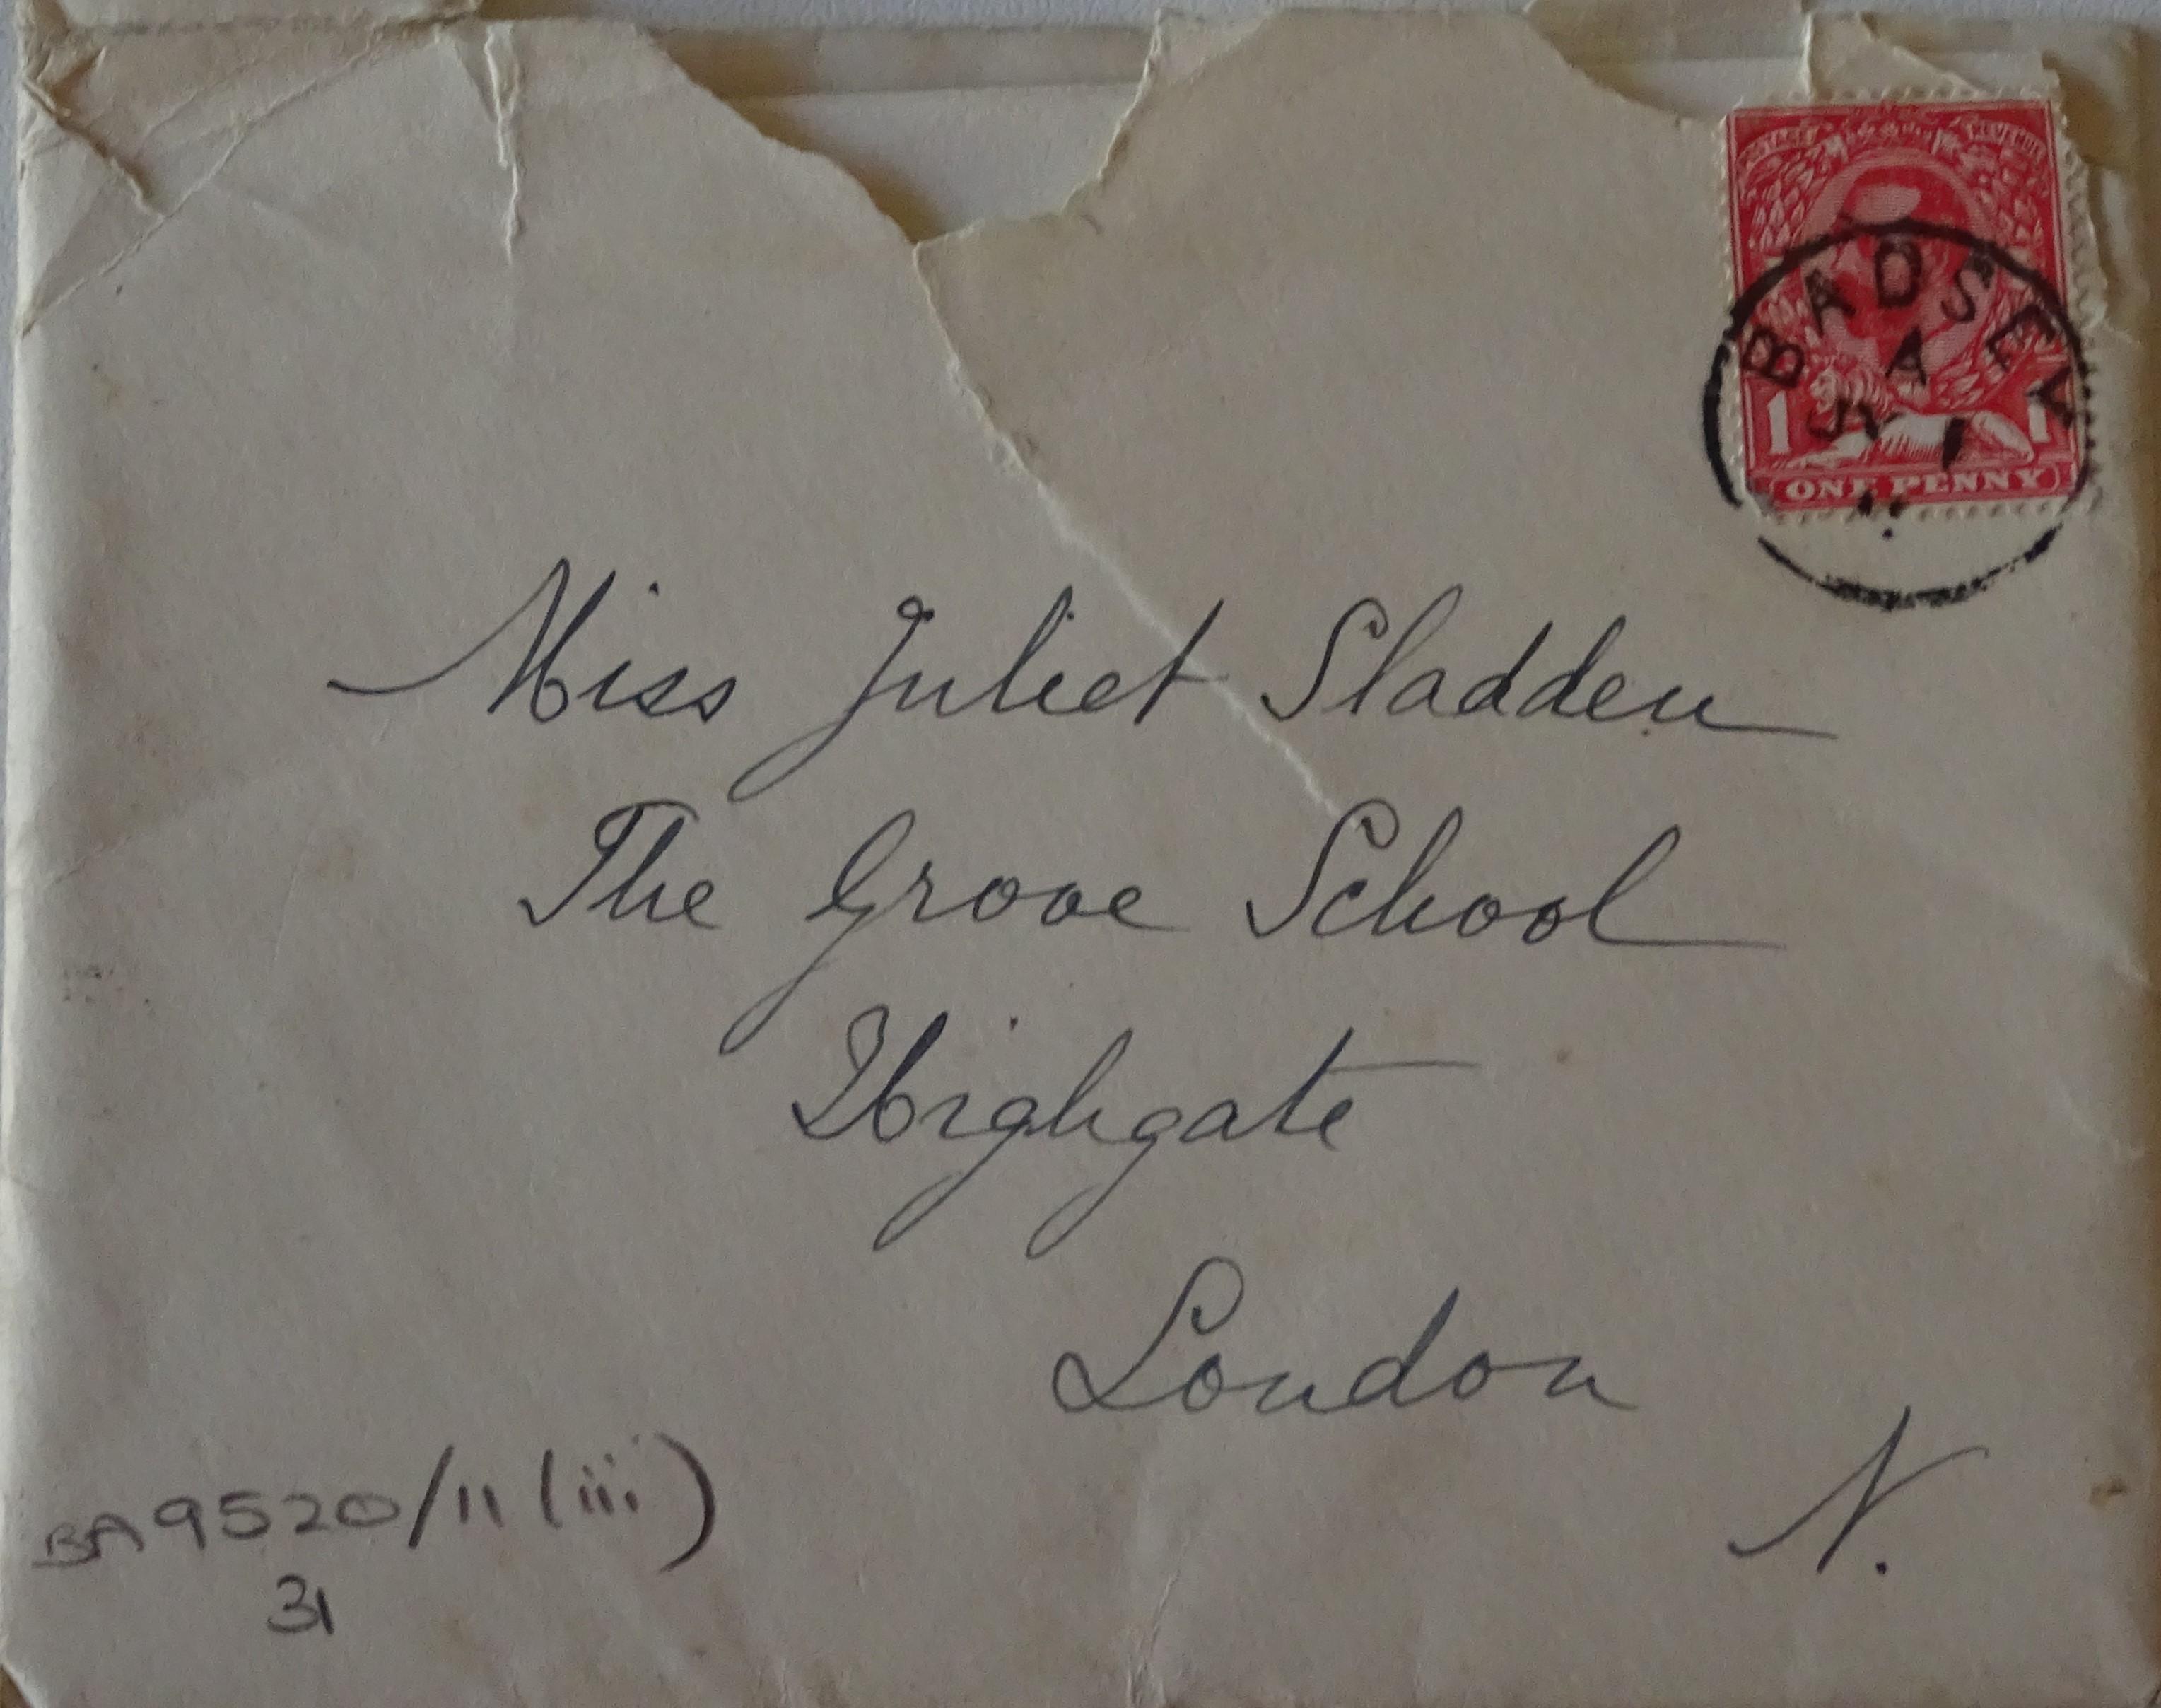 POSTAGE REVENUE
BADSEY
A
JY 1
1 1
ONE PENNY
Miss Juliet Sladden
The Grove School
Highgate
London
N.
BA9520/11(iii)
31